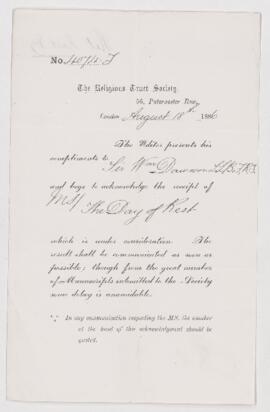 No. 4074. J
The Religious Tract Society.
56, Paternoster Row,
London August 18th 1886
The Editor presents his
compliments to Sir Wm Dawson
and begs to acknowledge the receipt of
MS/ The Day of Rest
which is under consideration. The
result shall be communicated as soon as
possible; though from the great number
of Manuscripts submitted to the Society
some delay is unavoidable.
In any communication regarding the MS. the number
at the head of this acknowledgment should be
quoted.